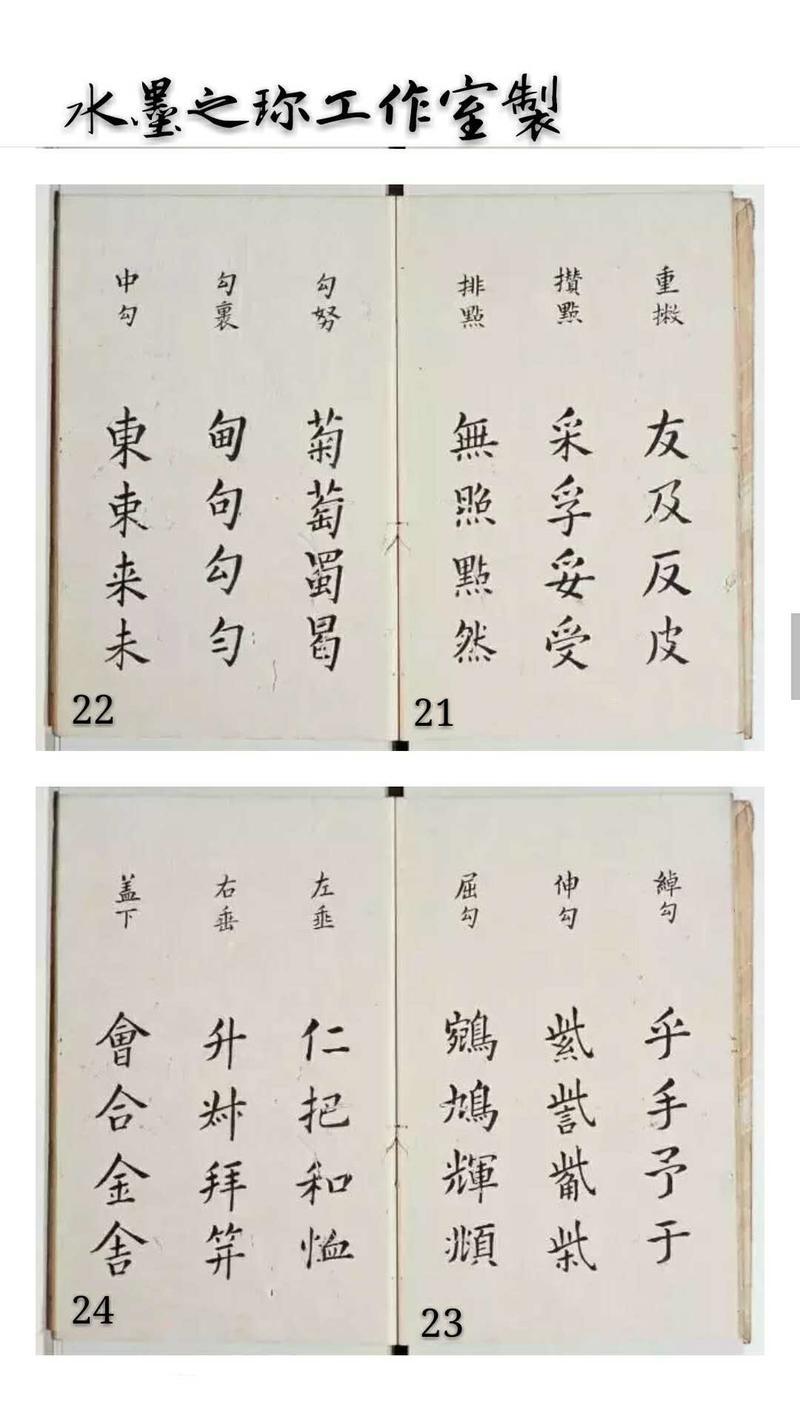 水墨之珎工作室製
重撇
友及反皮
攢點
采孚妥受
排點
無照點然
21
勾努
菊萄蜀曷
勾裹
甸句勾勻
中勾
東東来未
22
綽勾
乎手予于
伸勾
紫訾柴
屈勾
鵷鳩輝頫
23
左垂
仁把和恤
右垂
升拜笄
盖下
會合金舎
24